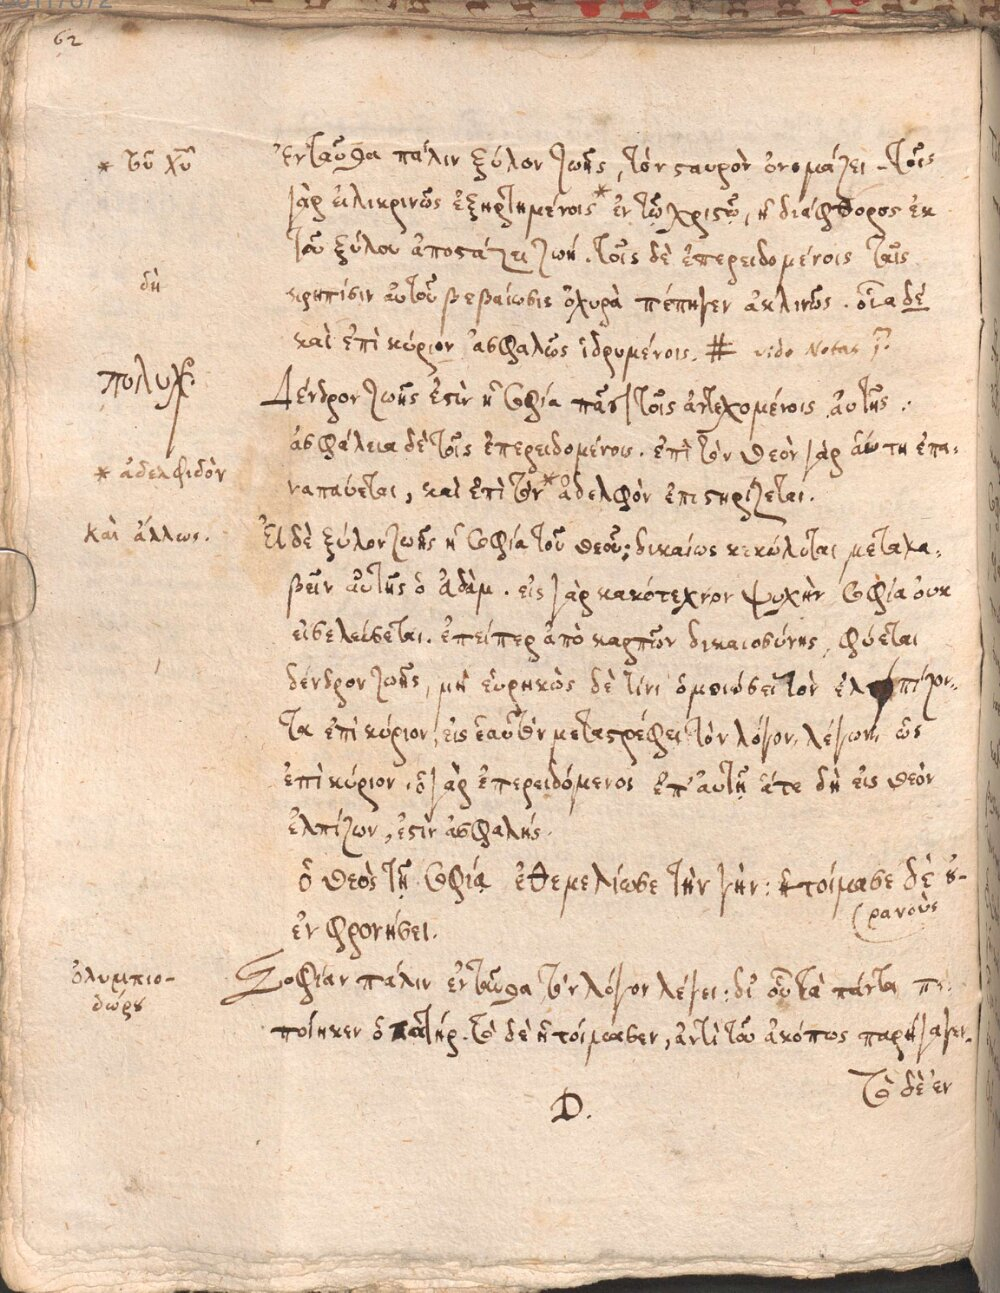 62
* τοῦ χῦ
Ἐνταῦθα πάλιν ξύλον ζωῆς, τὸν σαυρὸν ὀνομάζει· τοῖς
γὰρ εἰλικρινῶς ἐξηρτημένοις * ἐν τῷ χριστῷ, ἡ διάφθορος ἐκ
τοῦ ξύλου ἀποστάζει ζωή. τοῖς δὲ ἐπερειδομένοις ταῖς
δὴ
κρηπίσιν αὐτοῦ βεβαίωσις ὀχυρὰ πέπηγεν ἀκλινῶς. οἷα δὲ
καὶ ἐπὶ κύριον ἀσφαλῶς ἱδρυμένοις. # vide Notas
πολυχ.
Δένδρον ζωῆς ἐστὶν ἡ σοφία πᾶσι τοῖς ἀντεχομένοις αὐτῆς.
ἀσφάλεια δὲ τοῖς ἐπερειδομένοις. ἐπὶ τὸν θεὸν γὰρ αὕτη ἐπα-
* ἀδελφιδὸν
ναπαύεται, καὶ ἐπὶ τὸν * ἀδελφὸν ἐπιστηρίζεται.
καὶ ἄλλως.
Εἰ δὲ ξύλον ζωῆς ἡ σοφία τοῦ θεοῦ; δικαίως κεκώλυται μεταλα-
βεῖν αὐτῆς ὁ ἀδάμ. εἰς γὰρ κακότεχνον ψυχὴν σοφία οὐκ
εἰσελεύσεται. ἐπείπερ ἀπὸ καρπῶν δικαιοσύνης, φύεται
δένδρον ζωῆς, μὴ εὑρηκὼς δὲ τίνι ὁμοιώσει τὸν ἐλπίζον-
τα ἐπὶ κύριον, εἰς ἑαυτὸν μεταστρέφει τὸν λόγον, λέγων, ὡς
ἐπὶ κύριον. ὁ γὰρ ἐπερειδόμενος ἐπ' αὐτῇ ἅτε δὴ εἰς θεὸν
ἐλπίζων, ἐστὶν ἀσφαλής.
ὁ θεὸς τῇ σοφίᾳ ἐθεμελίωσε τὴν γῆν: ἡτοίμασε δὲ οὐ-
ρανοὺς
ἐν φρονήσει.
ὀλυμπιο-
δώρου
Σοφίαν πάλιν ἐνταῦθα τὸν λόγον λέγει: δι' οὗ τὰ πάντα πε-
ποίηκεν ὁ πατήρ. τὸ δὲ ἡτοίμασεν, ἀντὶ τοῦ ἀκόπως παρήγαγεν.
Τὸ δὲ ἐν
D.